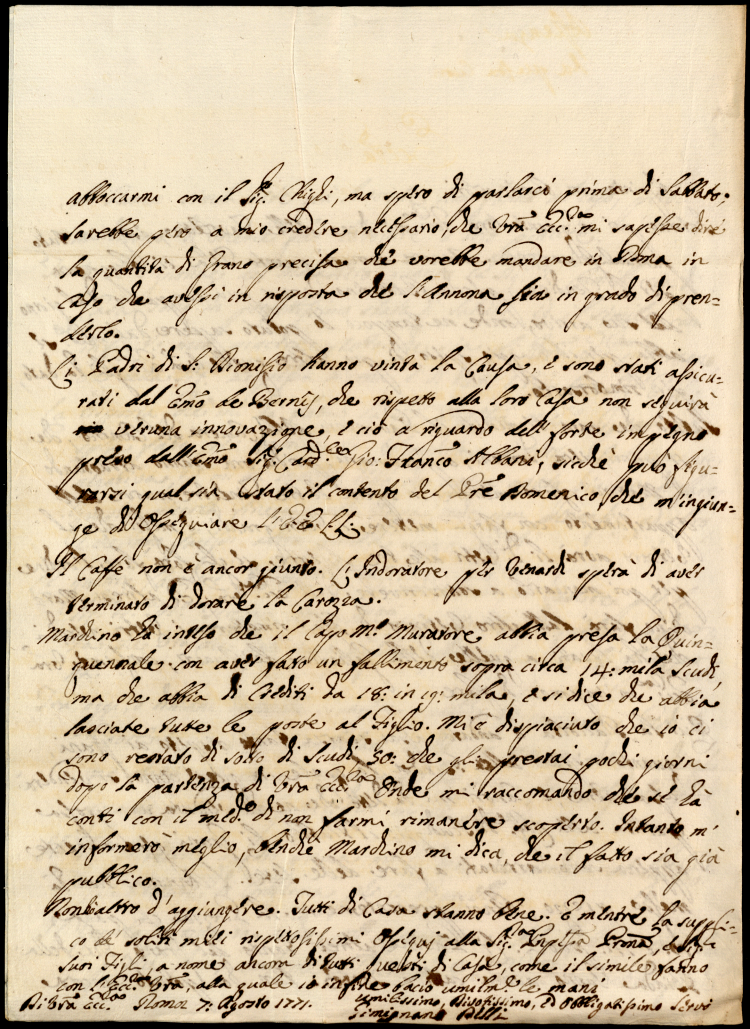 abboccarmi con il Sig.r Chigi, ma spero di parlarci prima di Sabbato;
sarebbe però a mio credere necessario, che Vrã Ecc.za mi sapesse dire
la quantità di Grano precisa che vorebbe mandare in Roma in
caso che avessi in risposta che l'Annona sia in grado di pren=
derlo.
Li Padri di S. Dionisio hanno vinta la Causa, e sono stati assicu=
rati dal Emõ de Bernis, che rispetto alla loro Casa non seguirà
veruna innovazione, e ciò a riguardo dell'forte impegno
preso dall'Emõ Sig. Card.le Gio: Franco Albani, sicchè può figu=
rarsi qual sia stato il contento del Prẽ Domenico, che m'ingiun=
ge di Ossequiare l'EE. LL.
Il Caffè non è ancor giunto. L'Indoratore per Venardì spera di aver
terminato di dorare la Carozza.
Marchino hà inteso che il Capo M.ro Muratore abbia presa la Quin=
quennale con aver fato un fallimento sopra circa 14: mila Scudi,
ma che abbia di Crediti da 18: in 19: mila, e si dice che abbia
lasciate tutte le poste al Figlio. Mi è dispiaciuto che io ci
sono restato di sotto di Scudi 30: che gli prestai pochi giorni
dopo la partenza di Vrã Ecc.za Onde mi raccomando che se hà
conti con il med.o di non farmi rimanère scoperto. Intanto m'
informerò meglio, benchè Marchino mi dica, che il fatto sia già
pubblico.
Non hò altro d'aggiungère. Tutti di Casa stanno bene. E mentre la suppli=
co de' soliti miei rispettosissimi Ossequj alla Sig.ra Pnpẽssa Pronã, e Sig.
suoi Figli a nome ancora di tutti questi di Casa, come il simile fanno
con l'Ecc.za Vrã, alla quale in fine bacio umilm.te le mani
Di Vrã Ecc.za Roma 7: Agosto 1771.
Umilissimo, Divotissimo, ed Obbligatissimo Serv.e
Gimignano Belli